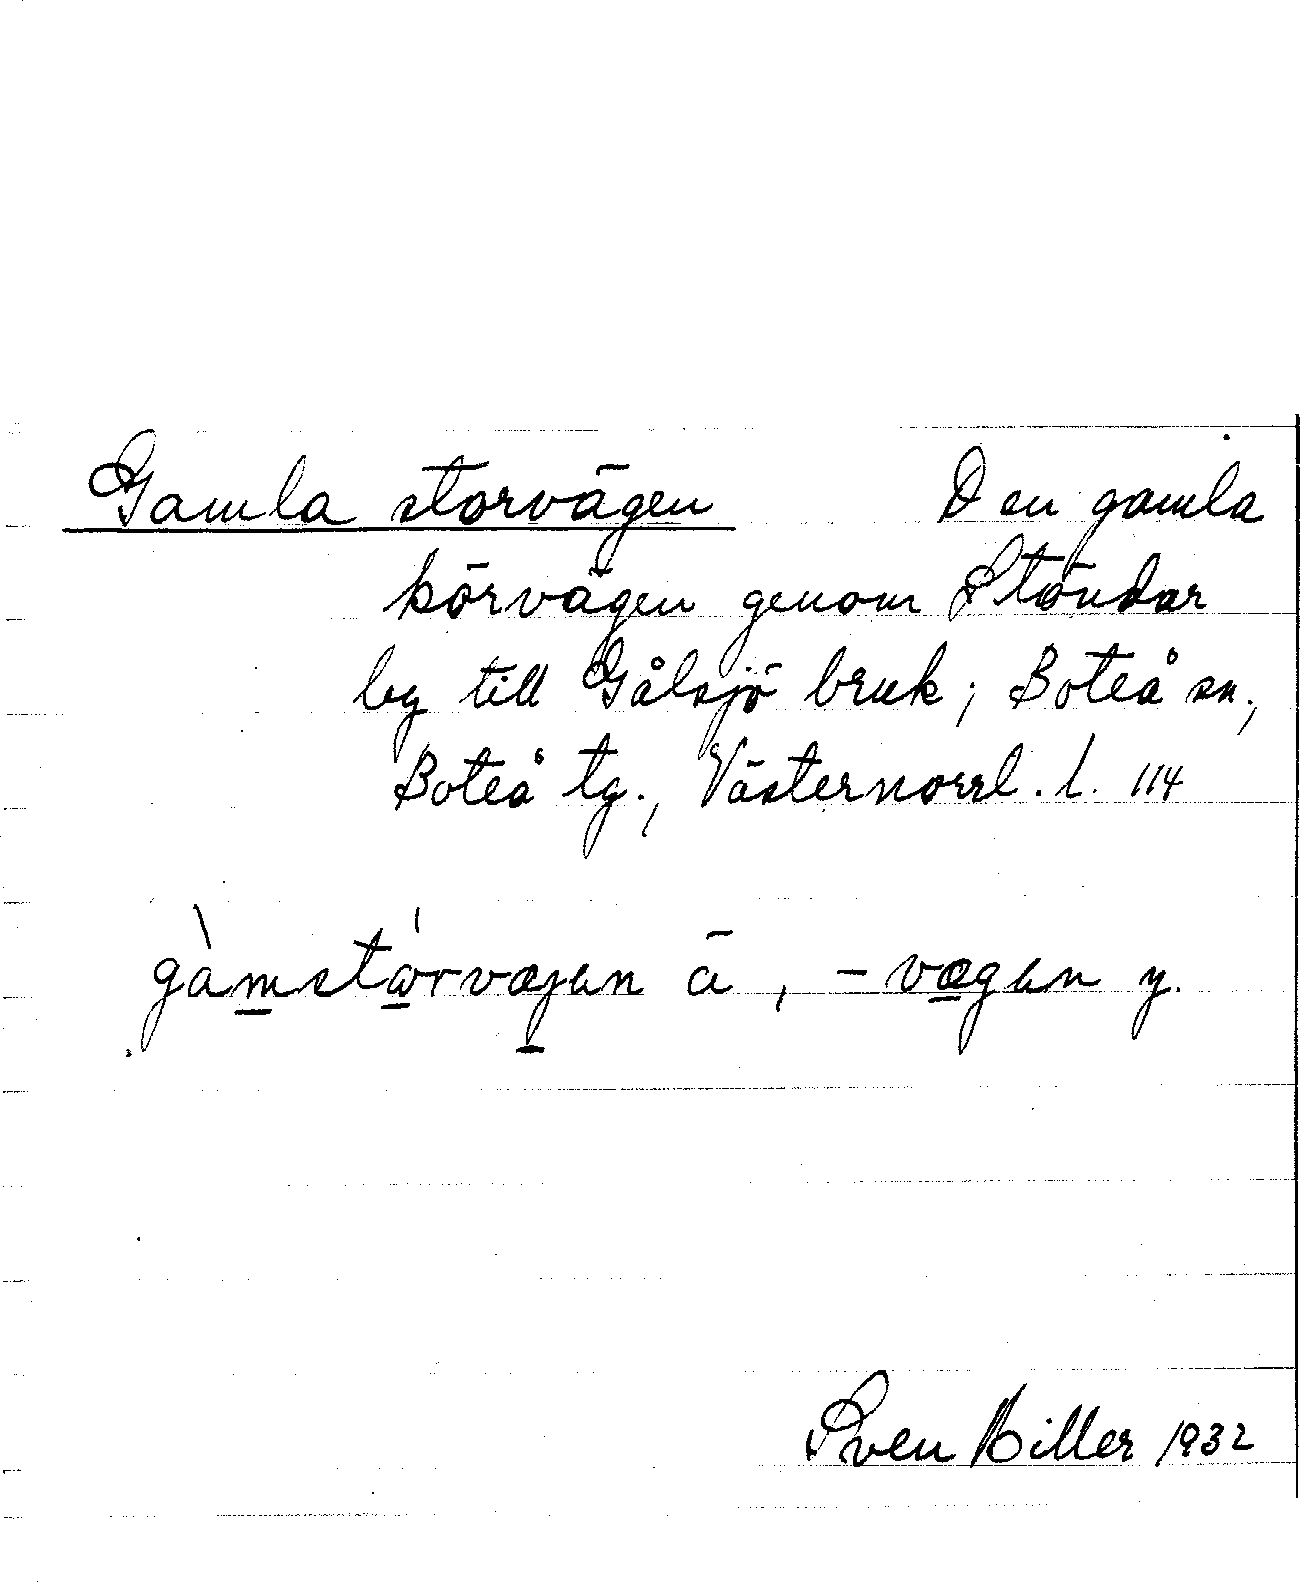 Gamla storvägen Den gamla
körvägen genom Ständar
by till Gålsjö bruk; Boteå sn.,
Boteå tg., Västernorrl. l. 114
gàmstórvæjen ä, -vægen y.
Sven Hiller 1932